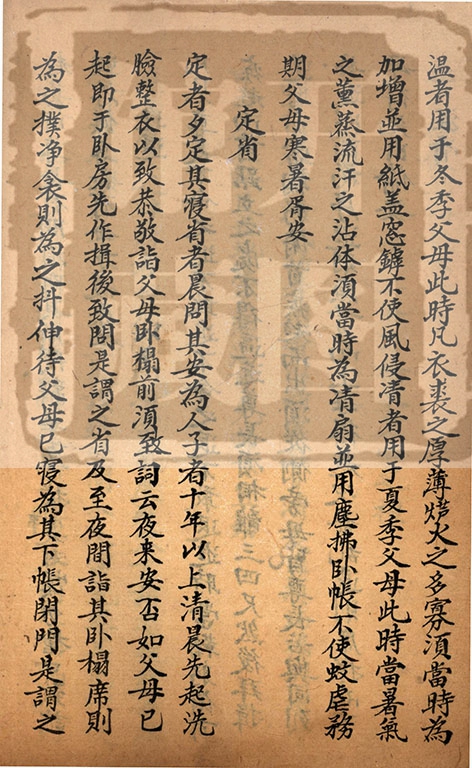 温者用于冬季父母此時凡衣裘之厚薄焙火之多寡須當時為
加增並用紙盖窓罅不使風侵凊者用于夏季父母此時當暑氣
之薰蒸流汗之沾体須當時為凊扇並用塵拂卧帳不使蚊虐務
期父母寒暑胥安
定省
定者夕定其寢省者晨問其安為人子者十年以上清晨先起洗
臉整衣以致恭敬詣父母卧榻前須致詞云夜來安否如父母已
起即于卧房先作揖後致問是謂之省及至夜間詣其卧榻席則
為之撲净衾則為之抖伸待父母已寢為其下帳閉門是謂之